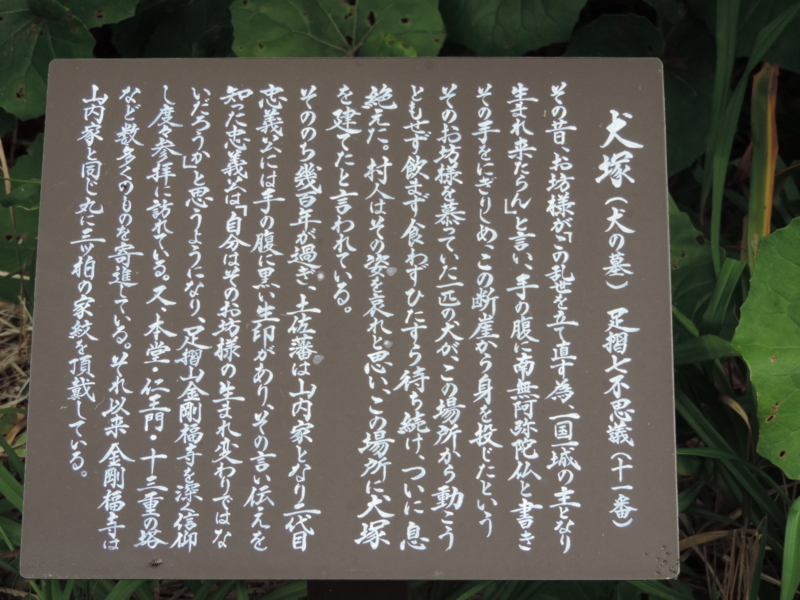 犬塚(犬の墓) 足摺七不思議(十一番)
その昔、お坊様が、「この乱世を立て直す為、一国一城の主となり
生まれ来たらん」と言い、手の腹に南無阿弥陀仏と書き
その手をにぎりしめ、この断崖から身を投じたという
そのお坊様を慕っていた一匹の犬が、この場所から動こう
ともせず飲まず食わずひたすら待ち続け、ついに息
絶えた。村人はその姿を哀れと思い、この場所に犬塚
を建てたと言われている。
そののち幾百年が過ぎ、土佐藩は山内家となり二代目
忠義公には手の腹に黒い生印があり、その言い伝えを
知た忠義公は、「自分はそのお坊様の生まれ変わりではな
いだろうか」と思うようになり、足摺山金剛福寺を深く信仰
し度々参拝に訪れている。又、本堂・仁王門・十三重の塔
など数多くのものを寄進している。それ以来金剛福寺は
山内家と同じ丸に三ッ柏の家紋を頂戴している。